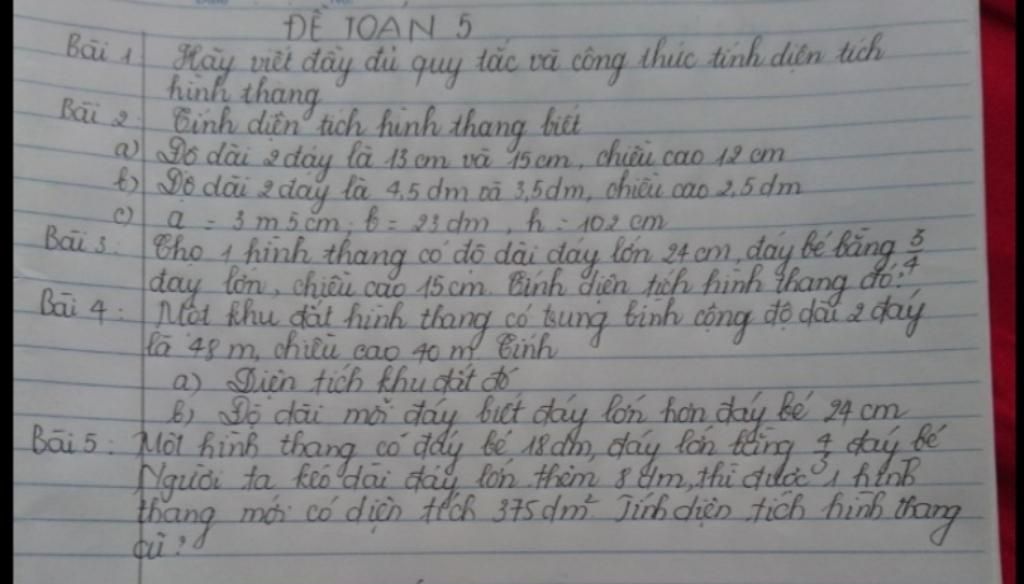 ĐỀ TOÁN 5
Bài 1: Hãy viết đầy đủ quy tắc và công thức tính diện tích
hình thang
Bài 2: Tính diện tích hình thang biết
a) Độ dài 2 đáy là 13 cm và 15 cm, chiều cao 12 cm
b) Độ dài 2 đáy là 4,5 dm và 3,5 dm, chiều cao 2,5 dm
c) a = 3 m 5 cm; b = 23 dm, h = 102 cm
Bài 3: Cho 1 hình thang có độ dài đáy lớn 24 cm, đáy bé bằng 3/4
đáy lớn, chiều cao 15 cm. Tính diện tích hình thang đó?
Bài 4: Một khu đất hình thang có trung bình cộng độ dài 2 đáy
là 48 m, chiều cao 40 m. Tính
a) Diện tích khu đất đó
b) Độ dài mỗi đáy biết đáy lớn hơn đáy bé 24 cm
Bài 5: Một hình thang có đáy bé 18 dm, đáy lớn bằng 4/3 đáy bé
Người ta kéo dài đáy lớn thêm 8 dm, thì được 1 hình
thang mới có diện tích 375 dm² Tính diện tích hình thang
cũ?